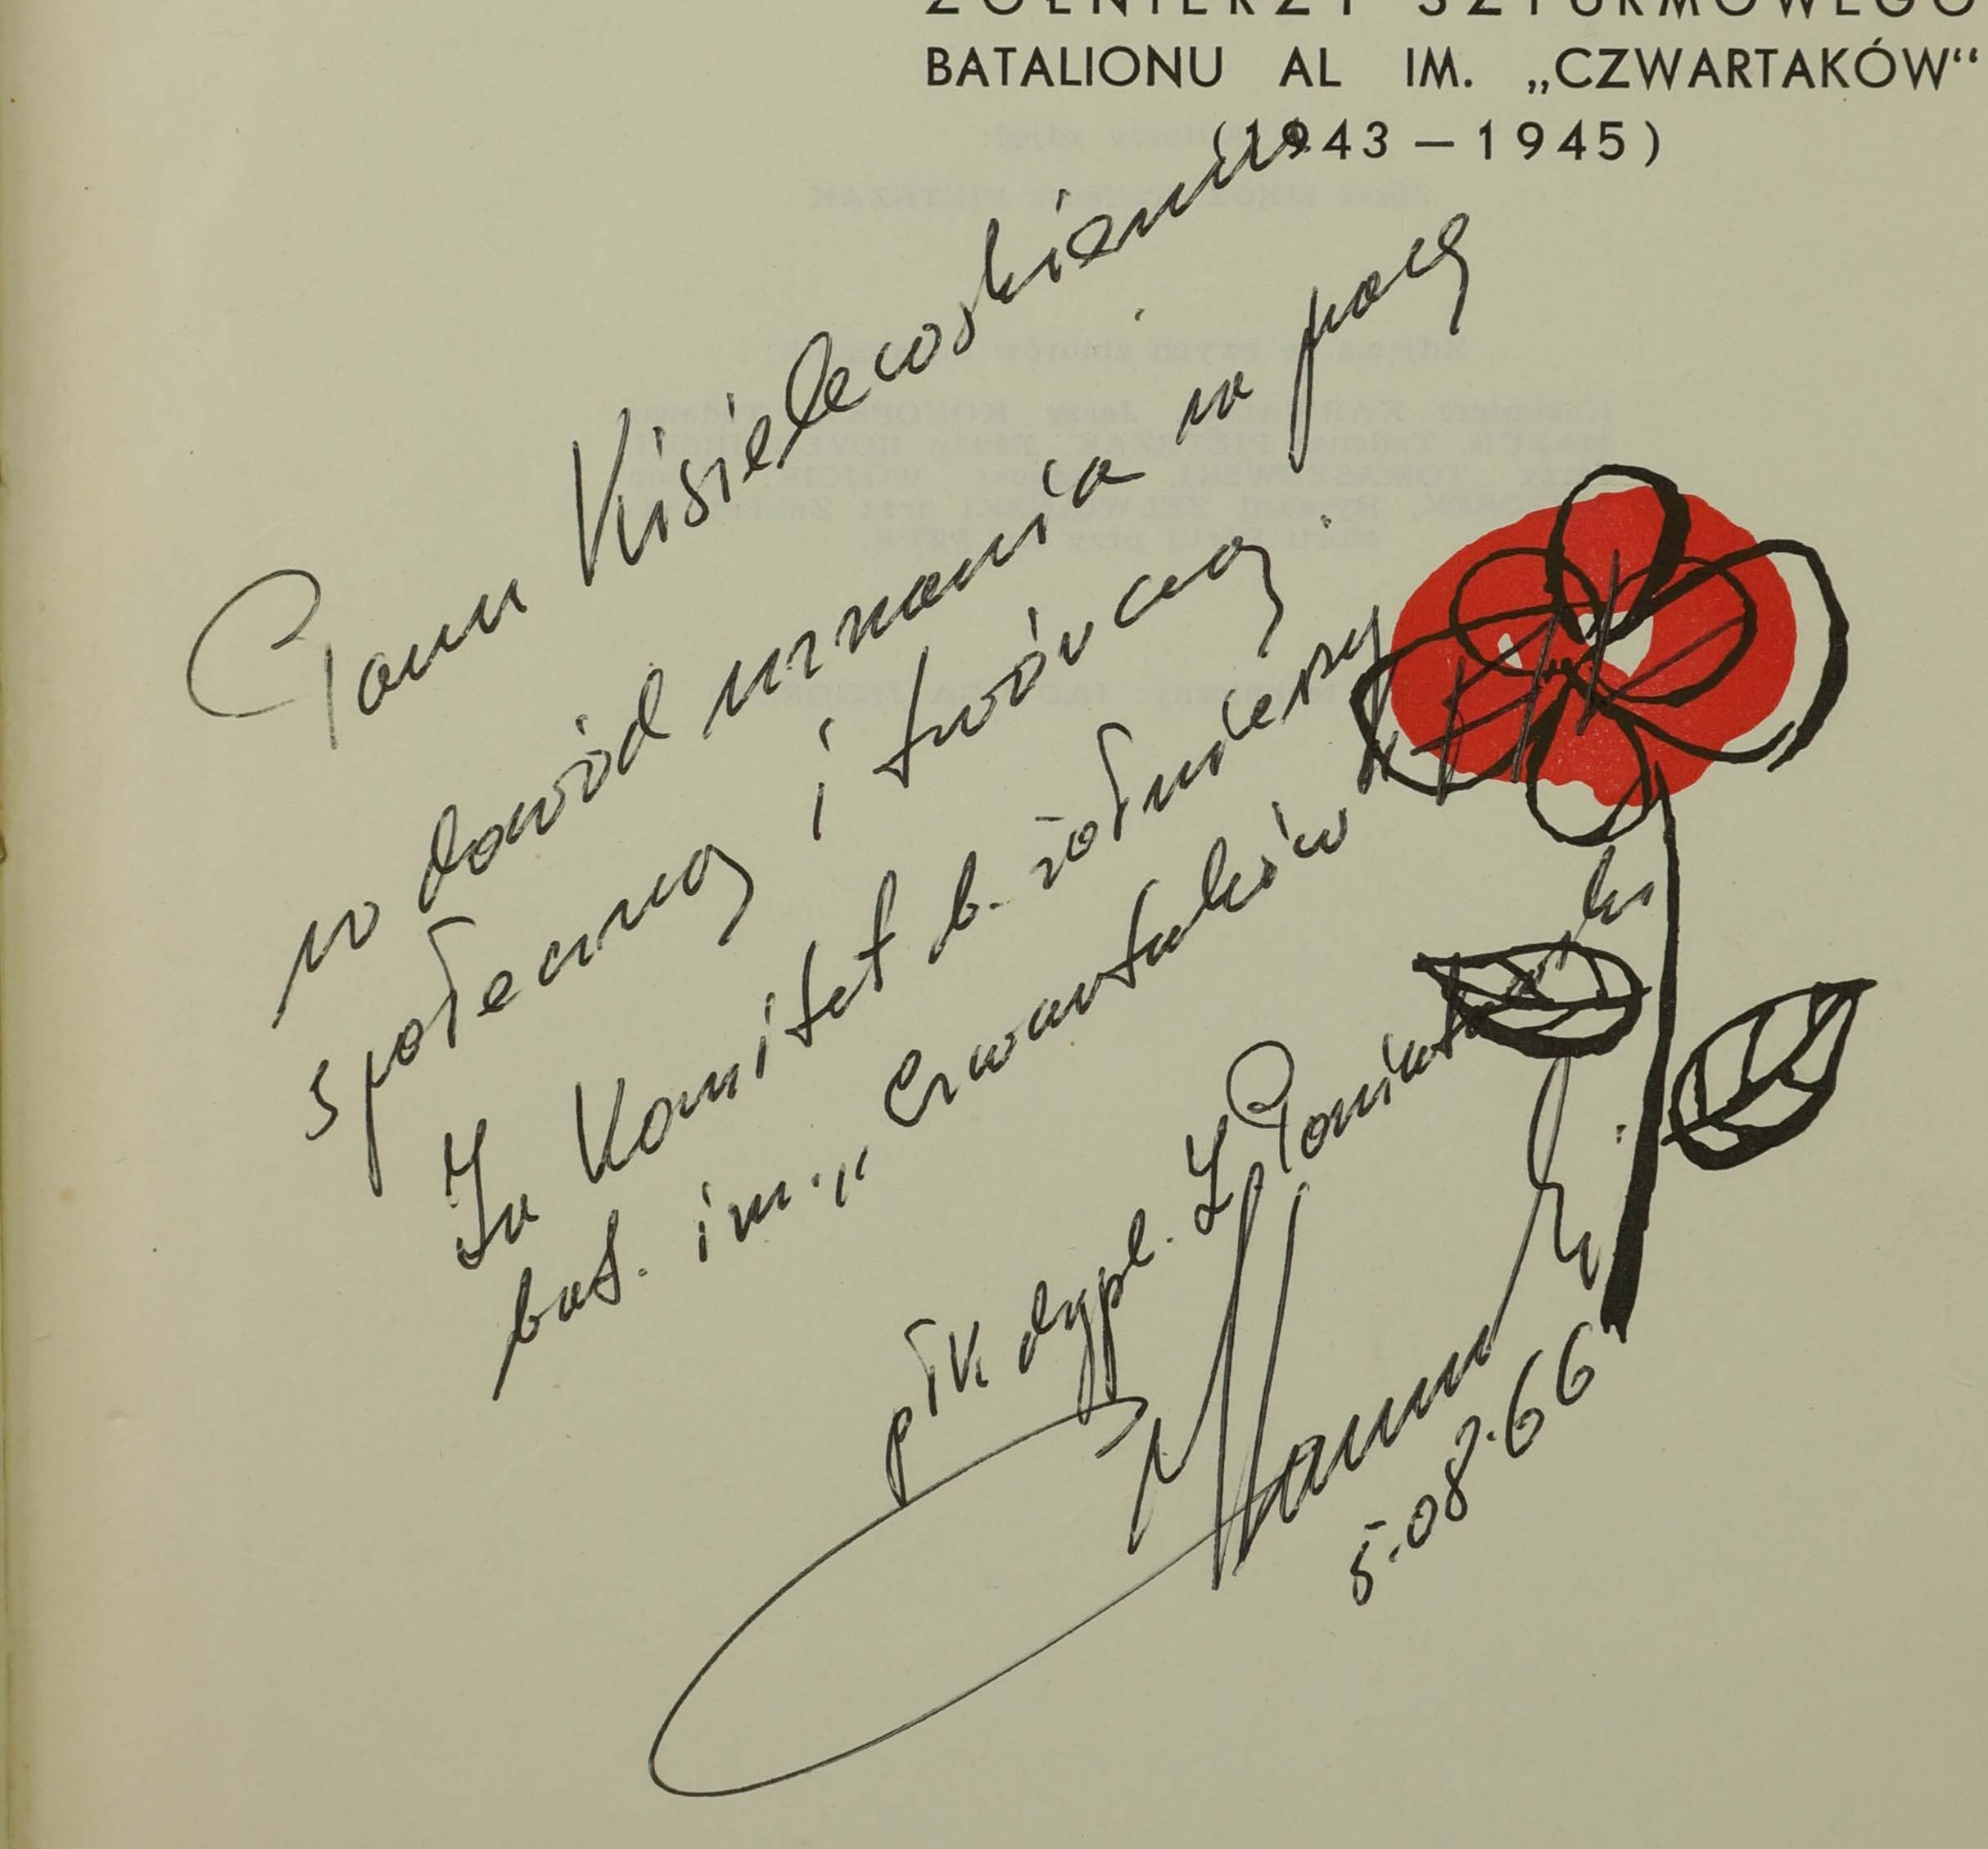 ŻOŁNIERZY SZTURMOWEGO
BATALIONU AL IM. „CZWARTAKÓW“
(1943 — 1945)
Panu Kisielewskiemu
w dowód uznania w pracy
społecznej i twórczej
Za Komitet b. żołnierzy
bat. im. „Czwartaków”
płk dypl. L
5.08.66